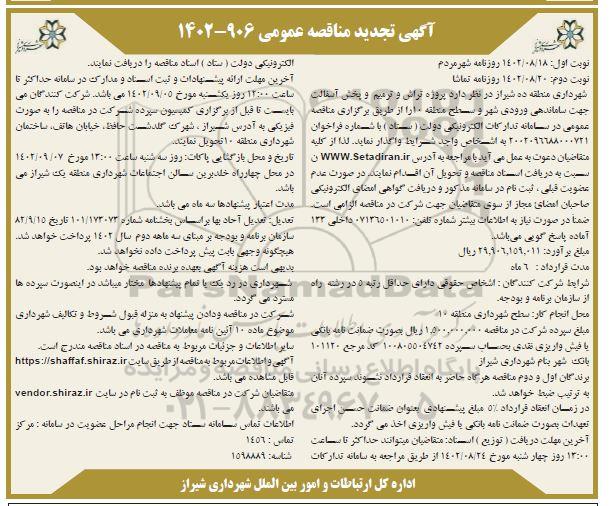 آگهی تجدید مناقصه عمومی ۹۰۶-۱۴۰۲
نوبت اول: ۱۴۰۲/۰۸/۱۸ روزنامه شهرمردم
نوبت دوم: ۱۴۰۲/۰۸/۲۰ روزنامه تماشا
شهرداری منطقه ده شیراز در نظر دارد پروژه تراش و ترمیم و پخش آسفالت
جهت ساماندهی ورودی شهر و سطح منطقه ۱۰ را از طریق برگزاری مناقصه
عمومی در سامانه تدارکات الکترونیکی دولت (ستاد) با شماره فراخوان
۲۰۰۲۰۹۶۷۸۸۰۰۰۷۲۱ به اشخاص واجد شرایط واگذار نماید. لذا از کلیه
متقاضیان دعوت به عمل می آید با مراجعه به آدرس WWW.Setadiran.ir ن
سبت به دریافت اسناد مناقصه و تحویل آن اقدام نمایند. در صورت عدم
عضویت قبلی ، ثبت نام در سامانه مذکور و دریافت گواهی امضای الکترونیکی
صاحبان امضائ مجاز از سوی متقاضیان جهت شرکت در مناقصه الزامی است.
ضمنا در صورت نیاز به اطلاعات بیشتر شماره تلفن: ۰۷۱۳۶۵۰۱۰۱۰ داخلی ۱۳۳
آماده پاسخ گویی می‌باشد.
مبلغ برآورد: ۲۹,۹۰۶,۱۵۹,۰۱۱ ریال
مدت قرارداد : ۶ ماه
شرایط شرکت کنندگان : اشخاص حقوقی دارای حداقل رتبه ۵ در رشته راه
از سازمان برنامه و بودجه.
محل انجام کار: سطح شهرداری منطقه ۱۰
مبلغ سپرده شرکت در مناقصه ۱,۵۰۰,۰۰۰,۰۰۰ ریال بصورت ضمانت نامه بانکی
یا فیش واریزی نقدی بحساب سپرده ۱۰۰۸۰۵۵۰۴۷۴۲ کد مرجع ۱۰۱۱۲۰
بانک شهر بنام شهرداری شیراز
برندگان اول و دوم مناقصه هرگاه حاضر به انعقاد قرارداد نشوند سپرده آنان
به ترتیب ضبط خواهد شد.
در زمان انعقاد قرارداد ۵٪ مبلغ پیشنهادی بعنوان ضمانت حسن اجرای
تعهدات بصورت ضمانت نامه بانکی یا فیش واریزی اخذ می گردد.
آخرین مهلت دریافت ( توزیع ) اسناد: متقاضیان میتوانند حداکثر تا ساعت
۱۳:۰۰ روز چهار شنبه مورخ ۱۴۰۲/۰۸/۲۴ از طریق مراجعه به سامانه تدارکات
الکترونیکی دولت ( ستاد ) اسناد مناقصه را دریافت نمایند.
آخرین مهلت ارائه پیشنهادات و ثبت اسناد و مدارک در سامانه حداکثر تا
ساعت ۱۲:۰۰ روز یکشنبه مورخ ۱۴۰۲/۰۹/۰۵ می باشد. شرکت کنندگان می
بایست تا قبل از برگزاری کمیسیون سپرده شرکت در مناقصه را به صورت
فیزیکی به آدرس شیراز ، شهرک گلدشت حافظ، خیابان هاتف، ساختمان
شهرداری منطقه ۱۰ تحویل نمایند.
تاریخ و محل بازگشایی پاکات: روز سه شنبه ساعت ۱۳:۰۰ مورخ ۱۴۰۲/۰۹/۰۷
در محل چهارراه خلدبرین سالن اجتماعات شهرداری منطقه یک شیراز می
باشد.
مدت اعتبار پیشنهادها سه ماه می باشد.
تعدیل: تعدیل آحاد بها براساس بخشنامه شماره ۱۰۱/۱۷۳۰۷۳ تاریخ ۸۲/۹/۱۵
سازمان برنامه و بودجه بر مبنای سه ماهه دوم سال ۱۴۰۲ پرداخت خواهد شد.
هیچگونه وجهی بابت پیش پرداخت داده نخواهد شد.
بدیهی است هزینه آگهی بعهده برنده مناقصه خواهد بود.
شهرداری در رد یک یا تمام پیشنهادها مختار میباشد در اینصورت سپرده ها
مسترد می گردد.
شرکت در مناقصه ودادن پیشنهاد به منزله قبول شروط و تکالیف شهرداری
موضوع ماده ۱۰ آئین نامه معاملات شهرداری می باشد.
سایر اطلاعات و جزئیات مربوط به مناقصه در اسناد مناقصه مندرج است.
آگهی و اطلاعات مربوط به مناقصه از طریق سایت https://shaffaf.shiraz.ir
قابل مشاهده می باشد.
متقاضیان شرکت در مناقصه موظف به ثبت نام در سایت vendor.shiraz.ir
می باشند.
اطلاعات تماس سامانه ستاد جهت انجام مراحل عضویت در سامانه : مرکز
تماس : ۱۴۵۶
شناسه: ۱۵۹۸۸۸۹
اداره کل ارتباطات و امور بین الملل شهرداری شیراز
ParsNamadData
پایگاه اطلاع رسانی مناقصه و مزایده
۰۲۱-۸۸۳۴۹۶۷۰-۵